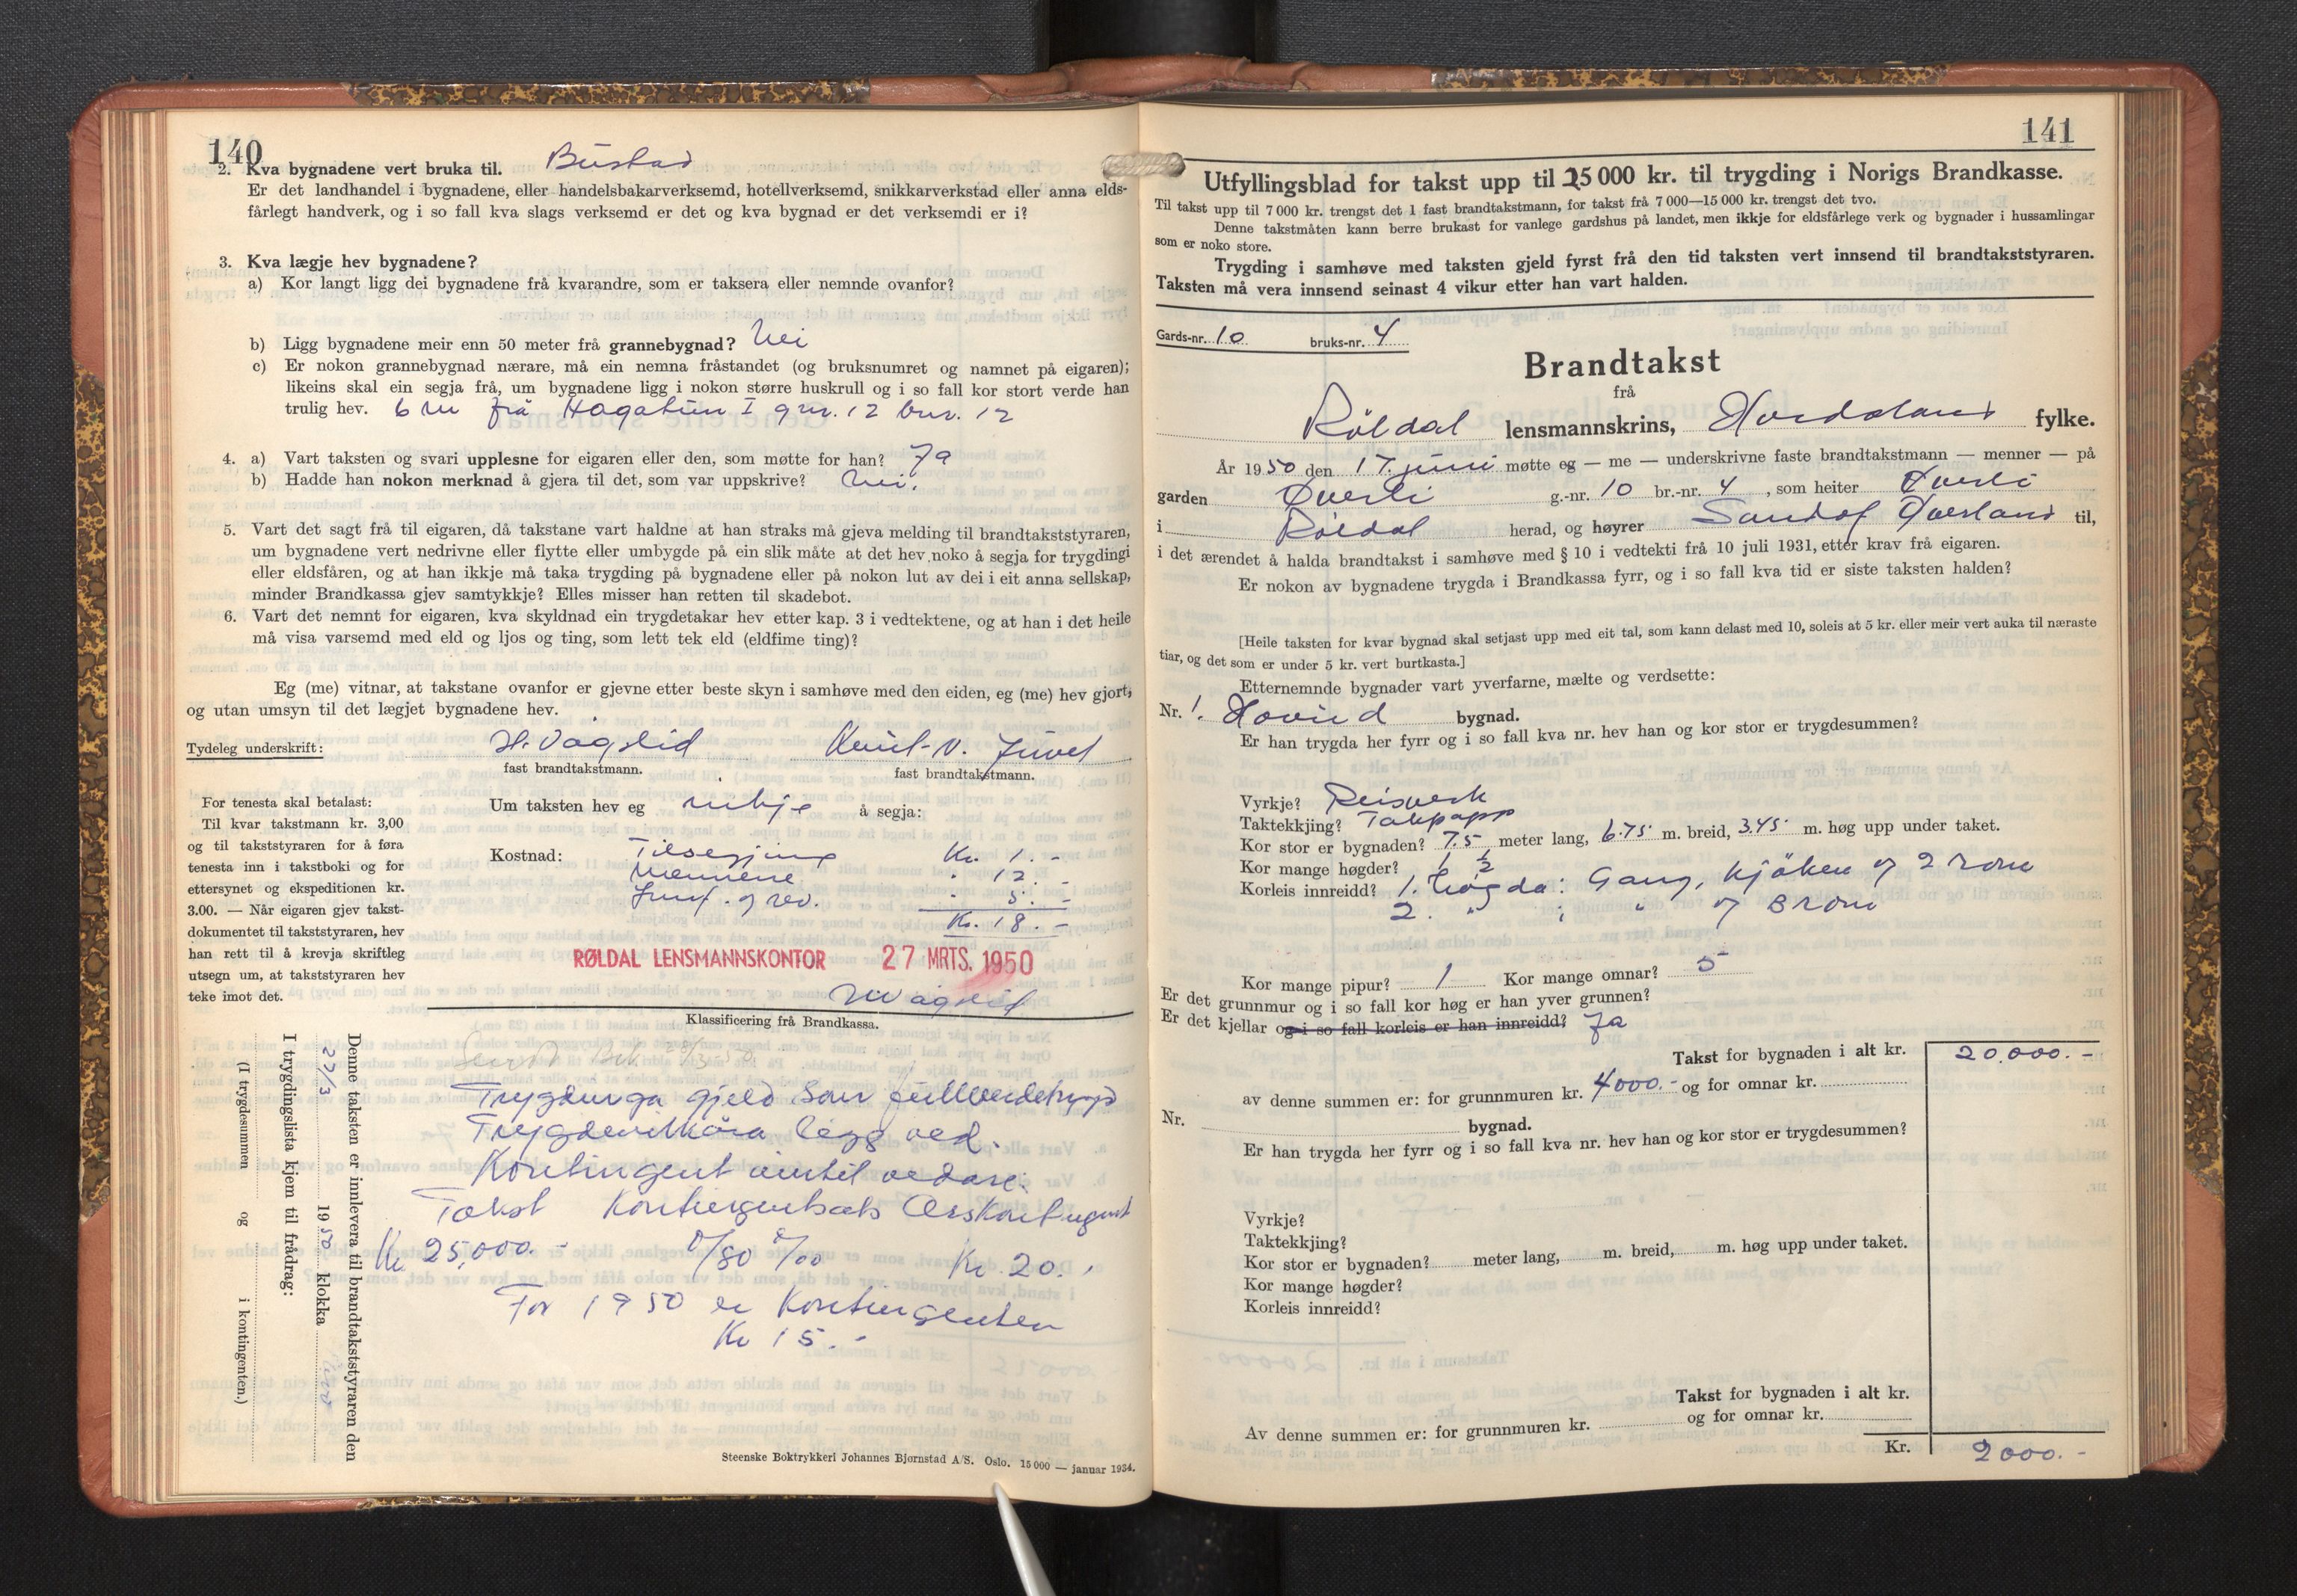 140
2. Kva bygnadene vert bruka til. Bustad
Er det landhandel i bygnadene, eller handelsbakarverksemd, hotellverksemd, snikkarverkstad eller anna elds-
fårlegt handverk, og i so fall kva slags verksemd er det og kva bygnad er det verksemdi er i?
3. Kva lægje hev bygnadene?
a) Kor langt ligg dei bygnadene frå kvarandre, som er taksera eller nemnde ovanfor?
b) Ligg bygnadene meir enn 50 meter frå grannebygnad? Nei
c) Er nokon grannebygnad nærare, må ein nemna fråstandet (og bruksnumret og namnet på eigaren);
likeins skal ein segja frå, um bygnadene ligg i nokon større huskrull og i so fall kor stort verde han
trulig hev. 6 m frå Hagatun I gnr. 12 bnr. 12
4. a) Vart taksten og svari upplesne for eigaren eller den, som møtte for han? Ja
b) Hadde han nokon merknad å gjera til det, som var uppskrive? Nei.
5. Vart det sagt frå til eigaren, då takstane vart haldne at han straks må gjeva melding til brandtakststyraren,
um bygnadene vert nedrivne eller flytte eller umbygde på ein slik måte at det hev noko å segja for trygdingi
eller eldsfåren, og at han ikkje må taka trygding på bygnadene eller på nokon lut av dei i eit anna sellskap,
minder Brandkassa gjev samtykkje? Elles misser han retten til skadebot.
6. Vart det nemnt for eigaren, kva skyldnad ein trygdetakar hev etter kap. 3 i vedtektene, og at han i det heile
må visa varsemd med eld og ljos og ting, som lett tek eld (eldfime ting)?
Eg (me) vitnar, at takstane ovanfor er gjevne etter beste skyn i samhøve med den eiden, eg (me) hev gjort,
og utan umsyn til det lægjet bygnadene hev.
Tydeleg underskrift: H. Vågslid Knut V. Juvet
fast brandtakstmann. fast brandtakstmann.
For tenesta skal betalast:
Til kvar takstmann kr. 3,00
og til takststyraren for å føra
tenesta inn i takstboki og for
ettersynet og ekspeditionen kr.
3.00. — Når eigaren gjev takst-
dokumentet til takststyraren, hev
han rett til å krevja skriftleg
utsegn um, at takststyraren hev
teke imot det.
Um taksten hev eg inkje å segja:
Kostnad: Tilsegjing Kr. 1.-
Mennene " 12.-
Innf. og rev. " 5.-
Kr. 18.-
RØLDAL LENSMANNSKONTOR 27 MRTS. 1950
Vågslid
Klassificering frå Brandkassa.
Trygdinga gjeld som fullverdetrygd
Trygdevilkåra legg ved.
Kontingent inntil vedare:
Takst Kontingentsats Årskontingent
Kr 25,000.- 0/80 0/00 Kr. 20.-
For 1950 er kontingenten
Kr 15.-
Denne taksten er innlevera til brandtakststyraren den
27/3 1950 klokka
I trygdingslista kjem til frådrag:
(I trygdesummen og i kontingenten.)
Steenske Boktrykkeri Johannes Bjørnstad A/S. Oslo. 15 000 — januar 1934.
141
Utfyllingsblad for takst upp til 25 000 kr. til trygding i Norigs Brandkasse.
Til takst upp til 7 000 kr. trengst det 1 fast brandtakstmann, for takst frå 7 000—15 000 kr. trengst det tvo.
Denne takstmåten kann berre brukast for vanlege gardshus på landet, men ikkje for eldsfårlege verk og bygnader i hussamlingar
som er noko store.
Trygding i samhøve med taksten gjeld fyrst frå den tid taksten vert innsend til brandtakststyraren.
Taksten må vera innsend seinast 4 vikur etter han vart halden.
Gards-nr. 10 bruks-nr. 4
Brandtakst
frå
Röldal lensmannskrins, Hordaland fylke.
År 1950 den 17. juni møtte eg — me — underskrivne faste brandtakstmann — menner — på
garden Øverli g.-nr. 10 br.-nr. 4, som heiter Øverli
i Röldal herad, og høyrer Sandof Øverland til,
i det ærendet å halda brandtakst i samhøve med § 10 i vedtekti frå 10 juli 1931, etter krav frå eigaren.
Er nokon av bygnadene trygda i Brandkassa fyrr, og i so fall kva tid er siste taksten halden?
[Heile taksten for kvar bygnad skal setjast upp med eit tal, som kann delast med 10, soleis at 5 kr. eller meir vert auka til næraste
tiar, og det som er under 5 kr. vert burtkasta.]
Etternemnde bygnader vart yverfarne, mælte og verdsette:
Nr. 1. Hovud bygnad.
Er han trygda her fyrr og i so fall kva nr. hev han og kor stor er trygdesummen?
Vyrkje? Reisverk
Taktekkjing? Takpapp
Kor stor er bygnaden? 7.5 meter lang, 6.75 m. breid, 3.45 m. høg upp under taket.
Kor mange høgder? 1 1/2
Korleis innreidd? 1. høgda: Gang, kjöken og 2 rom
2. " : " og 3 rom
Kor mange pipur? 1 Kor mange omnar? 5
Er det grunnmur og i so fall kor høg er han yver grunnen?
Er det kjellar og i so fall korleis er han innreidd? Ja
Takst for bygnaden i alt kr. 20.000.-
av denne summen er: for grunnmuren kr. 4000.- og for omnar kr.
Nr. bygnad.
Er han trygda her fyrr og i so fall kva nr. hev han og kor stor er trygdesummen?
Vyrkje?
Taktekkjing?
Kor stor er bygnaden? meter lang, m. breid, m. høg upp under taket.
Kor mange høgder?
Korleis innreidd?
Takst for bygnaden i alt kr.
Av denne summen er: for grunnmuren kr. og for omnar kr.
Kr. 2000.-